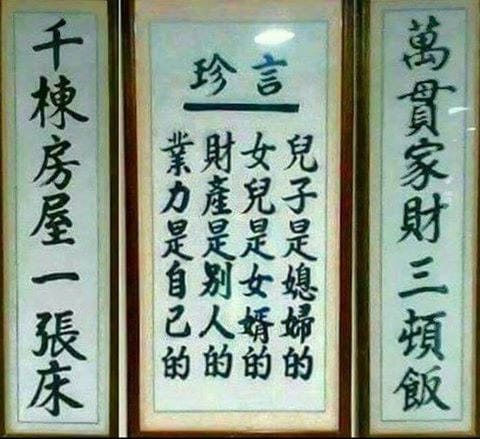 萬貫家財三頓飯
言珍
兒子是媳婦的
女兒是女婿的
財產是別人的
業力是自己的
千棟房屋一張床